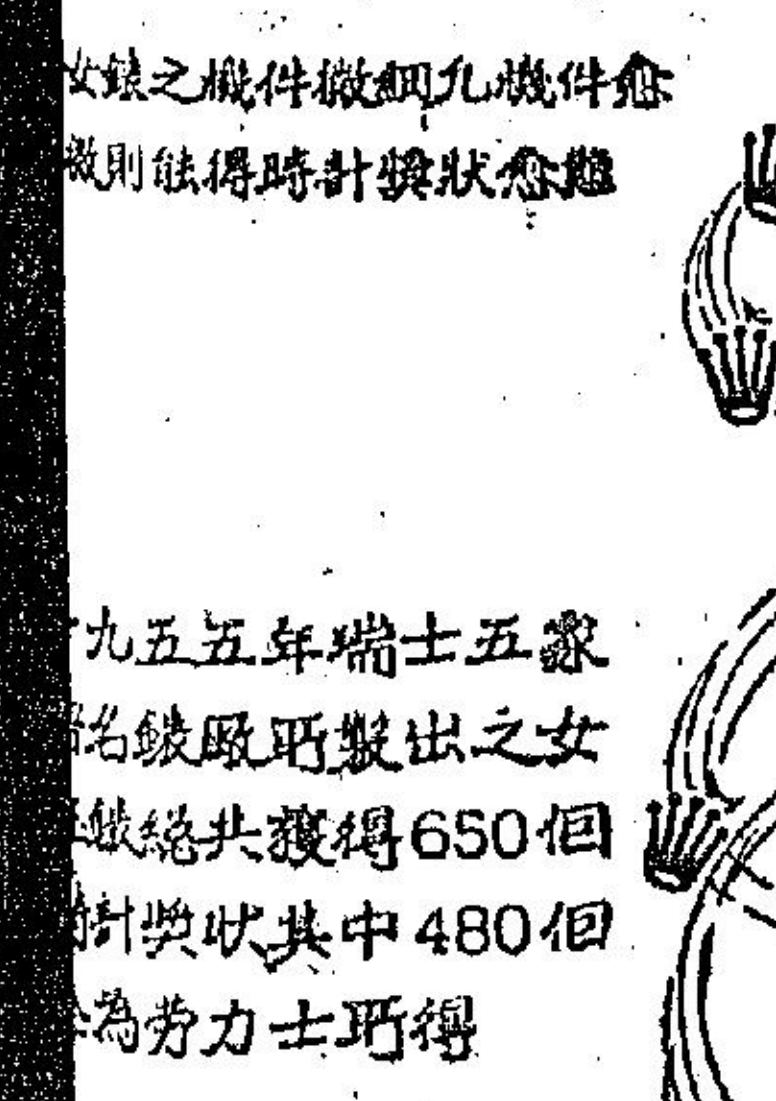 女錶之機件微細凡機件愈
微則能得時計獎狀愈難
一九五五年瑞士五家
著名錶廠所製出之女
錶總共獲得650個
時計獎狀其中480個
為勞力士所得